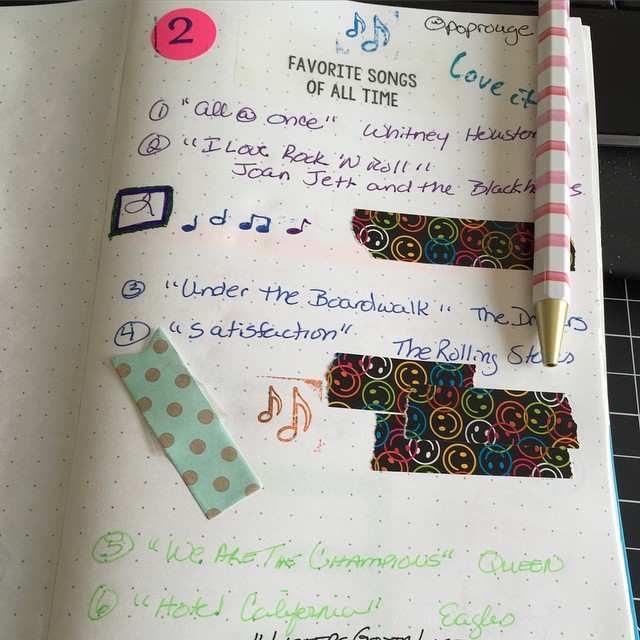 2
@poprouge
FAVORITE SONGS
OF ALL TIME
Love it
① "All @ once" Whitney Houston
② "I Love Rock 'N Roll"
Joan Jett and the
③ "Under the Boardwalk" The
④ "Satisfaction"
The Rolling Stones
⑤ "We Are The Champions" Queen
⑥ "Hotel California" Eagles